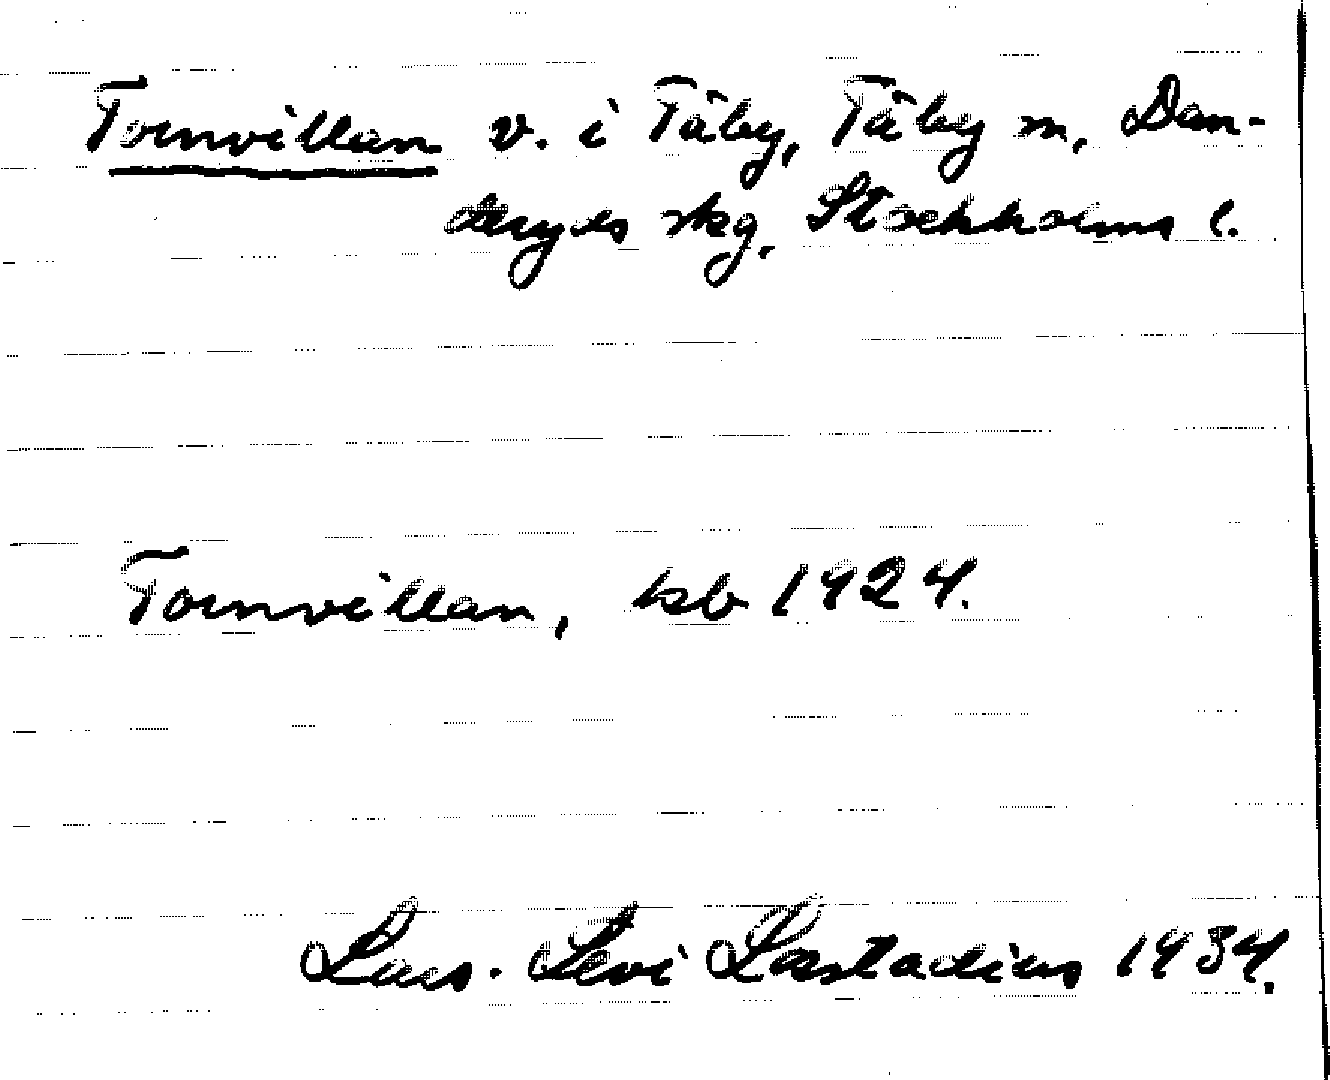 Tornvillan v. i Täby, Täby sn, Dan-
deryds skg, Stockholms l.
Tornvillan, ksb 1924.
Lars-Levi Læstadius 1934.